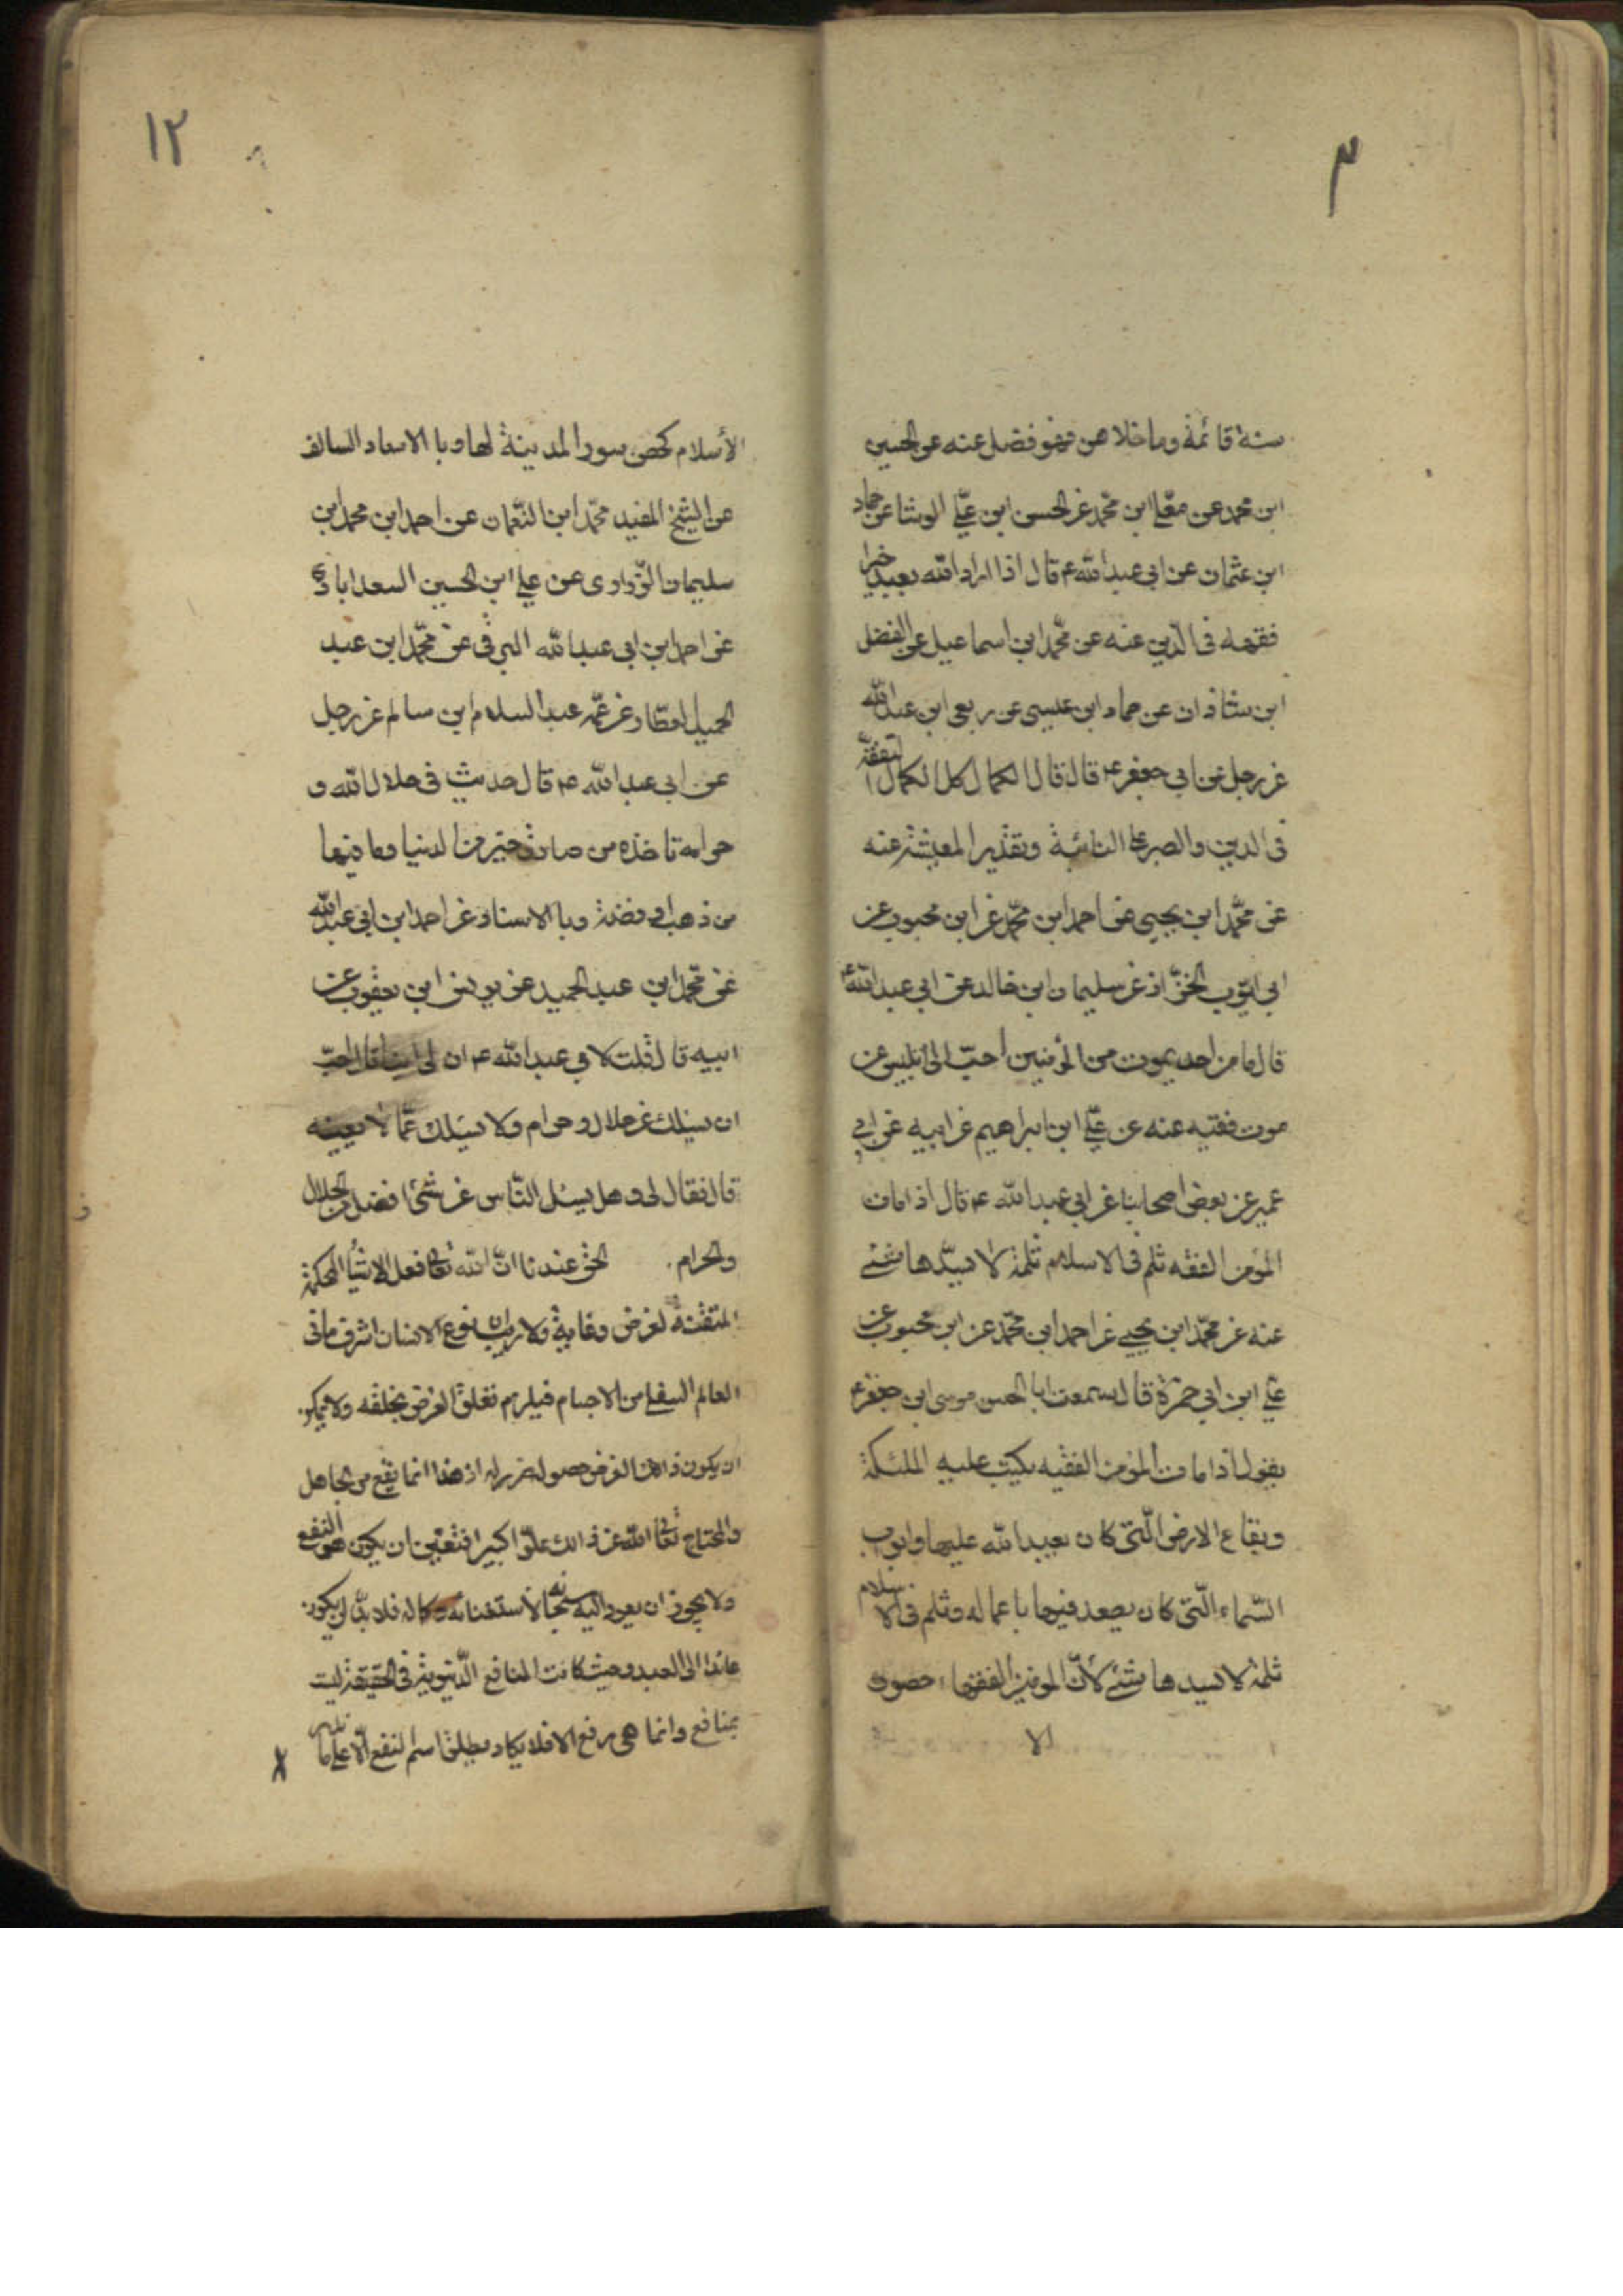 ٣
سنة قائمة وما خلاهن فهو فضل عنه عن الحسين
ابن محمد عن معلّى ابن محمّد عن الحسن ابن عليّ الوشا عن حماد
ابن عثمان عن ابى عبد الله ع قال اذا اراد الله بعبد خيرا
فقهه فى الدّين عنه عن محمّد ابن اسماعيل عن الفضل
ابن شاذان عن حماد ابن عيسى عن ربعى ابن عبد الله
عن رجل عن ابى جعفر ع قال قال الكمال كل الكمال التفقّه
فى الدين والصبر على النائبة وتقدير المعيشة عنه
عن محمّد ابن يحيى عن احمد ابن محمّد عن ابن محبوب عن
ابى ايّوب الخزّاز عن سليمان ابن خالد عن ابى عبد الله ع
قال ما من احد يموت من المؤمنين احبّ الى ابليس من
موت فقيه عنه عن عليّ ابن ابراهيم عن ابيه عن ابى
عمير عن بعض اصحابنا عن ابى عبد الله ع قال اذا مات
المؤمن الفقه ثلم فى الاسلام ثلمة لا يسدّها شئ
عنه عن محمّد ابن يحيى عن احمد ابن محمّد عن ابن محبوب عن
علي ابن ابى حمزة قال سمعت ابا الحسن موسى ابن جعفر ع
يقول اذا مات المؤمن الفقيه بكيت عليه الملئكة
وبقاع الارض الّتى كان يعبد الله عليها وابواب
السّماء الّتى كان يصعد فيها باعماله وثلم فى الاسلام
ثلمة لا يسدها شئ لأنّ المؤمنين الفقهاء حصون
الا
١٢
الأسلام كحصن سور المدينة لها وبالاسناد السالف
عن الشيخ المفيد محمّد ابن النّعمان عن احمد ابن محمد ابن
سليمان الزّرارى عن علي ابن الحسين السعدابادى
عن احمد ابن ابى عبد الله البرقى عن محمّد ابن عبد
الحميد العطار عن عمّه عبد السلام ابن سالم عن رجل
عن ابى عبد الله ع قال حديث فى حلال الله و
حرامه تاخذه من صادق خير من الدنيا وما فيها
من ذهب او فضة وبالاسناد عن احمد ابن ابى عبد الله
عن محمّد ابن عبد الحميد عن يونس ابن يعقوب عن
ابيه قال قلت لابى عبد الله ع ان لى ابنا قد احبّ
ان يسئلك عن حلال وحرام ولا يسئلك عمّا لا يعينه
قال فقال لى وهل يسئل النّاس عن شئ افضل من الحلال
والحرام الحق عندنا انّ الله تعالى فعل الاشياء المحكمة
المتقنة لغرض وغاية ولا ريب ان نوع الانسان اشرف ما فى
العالم السفلى من الاجسام فيلزم تعلق الغرض بخلقه ولا يمكن
ان يكون ذلك الغرض حصول ضرر له اذ هذا انما يقع من الجاهل
والمحتاج تعالى الله عن ذلك علوّا كبيرا فتعيّن ان يكون هو النفع
ولا يجوز ان يعود اليه سبحانه لأستغنائه وكماله فلا بدّ ان يكون
عائدا الى العبد وحيث كانت المنافع الدّنيوية فى الحقيقة ليست
بمنافع وانما هى رفع الالام فلا يكاد يطلق اسم النفع الّا على ما ندر